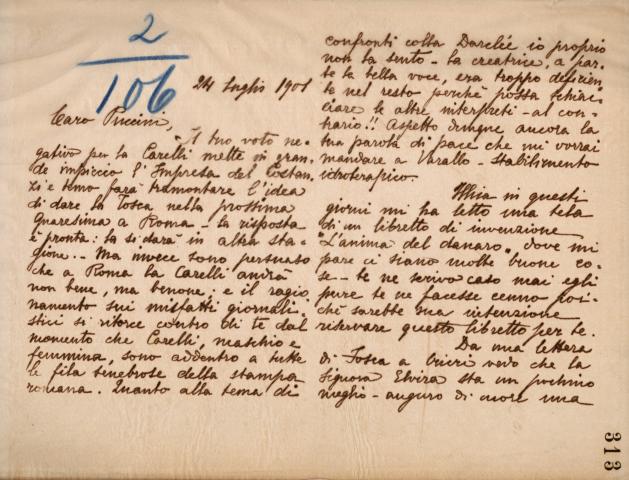 2
106
24 Luglio 1901
Caro Puccini,
Il tuo voto ne-
gativo per la Carelli mette in gran-
de impiccio l'Impresa del Costan-
zi e temo farà tramontare l'idea
di dare la Tosca nella prossima
Quaresima a Roma - la risposta
è pronta: la si darà in altra sta-
gione.. - Ma invece sono persuaso
che a Roma la Carelli andrà
non bene, ma benone: e il ragio-
namento sui misfatti giornali-
stici si ritorce contro di te dal
momento che Carelli, maschio e
femmina, sono addentro a tutte
le fila tenebrose della stampa
romana. Quanto alla tema di
confronti colla Darclée io proprio
non la sento - la creatrice, a par-
te la bella voce, era troppo deficien-
te nel resto perchè possa schiac-
ciare le altre interpreti - al con-
trario!! Aspetto dunque ancora la
tua parola di pace che mi vorrai
mandare a Varallo - Stabilimento
idroterapico.
Illica in questi
giorni mi ha letto una tela
di un libretto di invenzione
"L'anima del danaro", dove mi
pare ci siano molte buone co-
se - te ne scrivo caso mai egli
pure te ne facesse cenno poi-
chè sarebbe mia intenzione
riservare questo libretto per te.
Da una lettera
di Tosca a vedo che la
Signora Elvira sta un pochino
meglio - auguro di cuore una
313